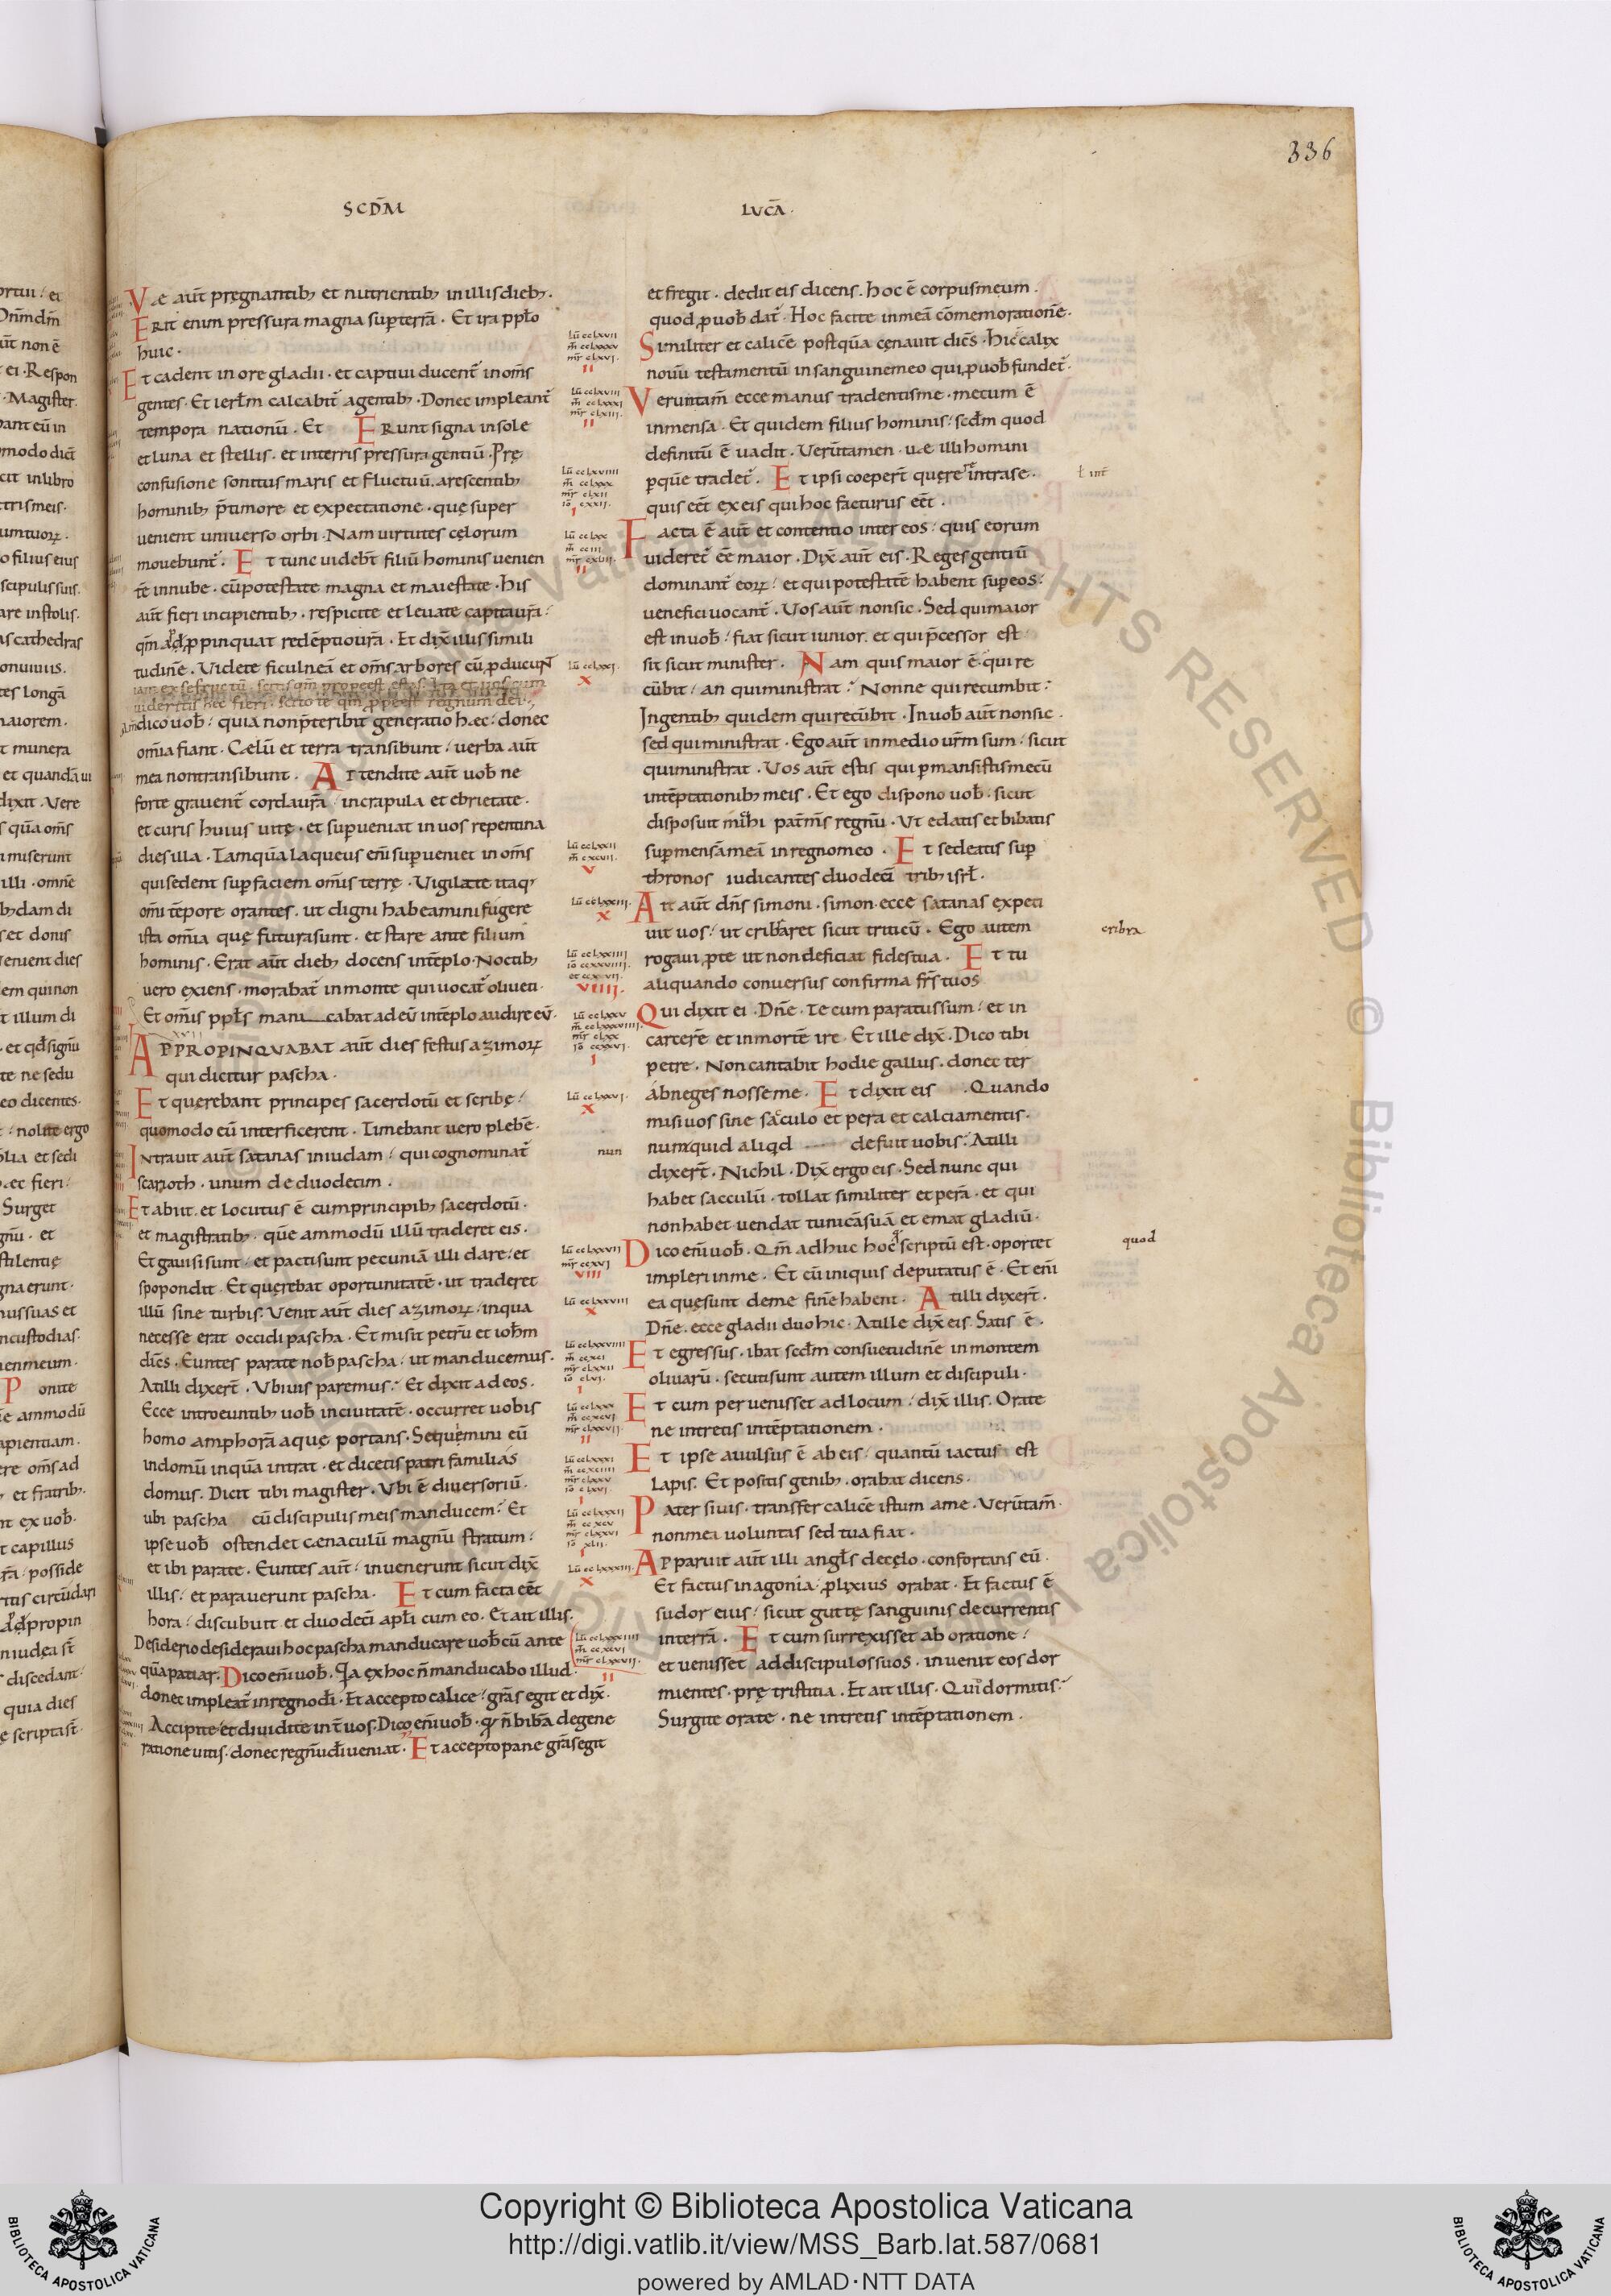 336
SCD̄M
LVCĀ.
Vae aūt pręgnantibꝫ et nutrientibꝫ inillisdiebꝫ.
Erit enim pressura magna sup̱terrā. Et ira ppl̄o
huic.
Et cadent in ore gladii. et captiui ducent̄ in om̄s
gentes. Et ierl̄m calcabit̄ agentibꝫ. Donec impleant̄
tempora nationū. Et Erunt signa insole
etluna et stellis. et interris pressura gentiū. Prę
confusione sonitus maris et fluctuū. arescentibꝫ
hominibꝫ p̄timore et expectatione. quę super
uenient uniuerso orbi. Nam uirtutes cęlorum
mouebunt̄. Et tunc uidebt̄ filiū hominis uenien
tē innube. cūpotestate magna et maiestate. His
aūt fieri incipientibꝫ. respicite et leuate capitaur̄a:
qm̄ adꝓpinquat redēptiour̄a. Et dix̄ illis simili
tudinē. Videte ficulneā et om̄s arbores cū ꝓducuɴᴛ
iam ex se fructū. scitis qm̄ prope est ęstas. Ita et uos cum
uideritis hęc fieri. scitote qm̄ ꝓpe est regnum dei.
am̄ dico uob̄: quia nonp̄teribit generatio hæc: donec
om̄ia fiant. Cælū et terra transibunt: uerba aūt
mea nontransibunt. Attendite aūt uob̄ ne
forte grauent̄ cordaur̄a incrapula et ebrietate.
et curis huius uitę. et sup̱ueniat in uos repentina
diesilla. Tamquā laqueus em̄ sup̱ueniet in om̄s
quisedent sup̱faciem om̄is terrę. Vigilate itaqꝫ
om̄i tēpore orantes. ut digni habeamini fugere
ista om̄ia quę futurasunt. et stare ante filium
hominis. Erat aūt diebꝫ docens intēplo. Noctibꝫ
uero exiens. morabat̄ inmonte qui uocat̄ oliueti.
Et om̄is ppl̄s mani cabat adeū intēplo audire eū.
XXII
APPROPINQVABAT aūt dies festus azimoꝝ
qui dicitur pascha.
Et querebant principes sacerdotū et scribę:
quomodo eū interficerent. Timebant uero plebē.
Intrauit aūt satanas iniudam: qui cognominat̄
scarioth. unum de duodecim.
Et abiit. et locutus ē cumprincipibꝫ sacerdotū.
et magistratibꝫ. quē ammodū illū traderet eis.
Et gauisi sunt: et pacti sunt pecuniā illi dare: et
spopondit. Et quęrebat oportunitatē. ut traderet
illū sine turbis. Venit aūt dies azimoꝝ: inqua
necesse erat occidi pascha. Et misit petrū et ioh̄m
dicēs. Euntes parate nob̄ pascha: ut manducemus.
Atilli dixert̄. Vbiuis paremus: Et dixit adeos.
Ecce introeuntibꝫ uob̄ inciuitatē. occurret uobis
homo amphorā aquę portans. Sequemini eū
indomū inquā intrat. et dicetis patri familiás
domus. Dicit tibi magister. Vbi ē diuersoriū.
ubi pascha cū discipulis meis manducem: Et
ipse uob̄ ostendet cænaculū magnū stratum:
et ibi parate. Euntes aūt: inuenerunt sicut dix̄
illis: et parauerunt pascha. Et cum facta eēt
hora: discubuit et duodecī apl̄i cum eo. Et ait illis.
Desiderio desideraui hoc pascha manducare uob̄ cū ante
quā patiar. Dico em̄ uob̄. Qa ęx hoc n̄ manducabo illud.
donec impleat̄ inregnodī. Et accepto calice: gr̄as egit et dix̄.
Accipite et diuidite int̄ uos. Dico em̄ uob̄. qđ n̄ bibā degene
ratione uitis. donec regnū dī ueniat. Et accepto pane gr̄as egit
lū cclxvii
m̄ cclxxxv
mr̄ clxvi.
II
lū cclxviii
m̄ cclxxxi
mr̄ clxiii.
II
lū cclxviiii
m̄ cclxxx
mr̄ clxii
iō cxxii.
I
lū cclxx
m̄ cciii
mr̄ cxbii.
II
lū cclxxi.
X
lū cclxxii
m̄ cxcvii.
V
lū cclxxiii.
X
lū cclxxiiii
iō ccxxviiii.
VIIII.
lū cclxxv
m̄ cclxxxviiii.
mr̄ clxx
iō ccxxvi.
I
lū cclxxvi.
X
nun
lū cclxxvii
mr̄ ccxvi
VIII
lū cclxxviii
X
lū cclxxviiii
m̄ ccxci
mr̄ clxxii
iō clvi.
I
lū cclxxx
m̄ ccxcvi
mr̄ clxxvii
II
lū cclxxxi
m̄ ccxciiii
mr̄ clxxv
iō clxvi.
I
lū cclxxxii
m̄ ccxcv
mr̄ clxxvi
iō xlii.
I
lū cclxxxiii.
X
lū cclxxxiiii
m̄ ccxcvi
mr̄ clxxvii.
II
et fregit. dedit eis dicens. hoc ē corpusmeum.
quod ꝓuob̄ dat̄. Hoc facite inmeā cōmemorationē.
Similiter et calicē postquā cęnauit dicēs. Hic calix
nouū testamentū insanguinemeo qui ꝓuob̄ fundet̄.
Veruntam̄ ecce manus tradentisme. mecum ē
inmensa. Et quidem filius hominis: scđm quod
definitū ē uadit. Verūtamen. uæ illi homini
p̱quē tradet̄. Et ipsi coepert̄ quęrere intrase.
quis eēt exeis qui hoc facturus eēt.
Facta ē aūt et contentio inter eos: quis eorum
uideret̄ eē maior. Dix̄ aūt eis. Reges gentiū
dominant̄ eoꝝ: et qui potestatē habent sup̱eos:
uenefici uocant̄. Vos aūt nonsic. Sed quimaior
est in uob̄: fiat sicut iunior. et qui p̄cessor est
sit sicut minister. Nam quis maior ē. qui re
cūbit: an quiministrat: Nonne quirecumbit:
Ingentibꝫ quidem quirecūbit. Inuob̄ aūt nonsic.
sed quiministrat. Ego aūt inmedio ur̄m sum: sicut
quiministrat. Vos aūt estis qui p̱mansistismecū
intēptationibꝫ meis. Et ego dispono uob̄. sicut
disposuit mihi pat̄m̄s regnū. Vt edatis et bibatis
sup̱mensāmeā inregnomeo. Et sedeatis sup̱
thronos iudicantes duodecī tribꝫ isrl̄.
Ait aūt dn̄s simoni. simon. ecce satanas expeti
uit uos: ut cribaret sicut triticū. Ego autem
rogaui ꝓte ut nondeficiat fidestua. Et tu
aliquando conuersus confirma fr̄s tuos
Qui dixit ei. Dn̄e. Tecum paratussum: et in
carcerē et inmortē ire. Et ille dix̄. Dico tibi
petre. Non cantabit hodie gallus. donec ter
abneges nosse me. Et dixit eis. Quando
misiuos sine sacculo et pera et calciamentis.
numquid aliqd defuit uobis: Atilli
dixert̄. Nichil. Dix̄ ergo eis. Sed nunc qui
habet sacculū. tollat similiter et perā. et qui
nonhabet uendat tunicāsuā et emat gladiū.
Dico em̄ uob̄. Qm̄ adhuc hoc scriptū est. oportet
impleri inme. Et cū iniquis deputatus ē. Et em̄
ea quęsunt deme finē habent. Atilli dixert̄.
Dn̄e. ecce gladii duo hic. Atille dix̄ eis. Satis ē.
Et egressus. ibat scđm consuetudinē in montem
oliuarū. secutisunt autem illum et discipuli.
Et cum peruenisset adlocum: dix̄ illis. Orate
ne intretis intēptationem.
Et ipse auulsus ē abeis: quantū iactus est
lapis. Et positis genibꝫ. orabat dicens.
Pater siuis. transfer calicē istum ame. Verūtam̄
nonmea uoluntas sed tua fiat.
Apparuit aūt illi angl̄s decęlo. confortans eū.
Et factus inagonia. ꝓlixius orabat. Et factus ē
sudor eius: sicut guttę sanguinis decurrentis
interrā. Et cum surrexisset ab oratione:
et uenisset addiscipulossuos. inuenit eos dor
mientes. prę tristitia. Et ait illis. Quid dormitis:
Surgite orate. ne intretis intēptationem.
ł int̄
cribra
quod
Copyright © Biblioteca Apostolica Vaticana
http://digi.vatlib.it/view/MSS_Barb.lat.587/0681
powered by AMLAD·NTT DATA
BIBLIOTECA APOSTOLICA VATICANA
BIBLIOTECA APOSTOLICA VATICANA